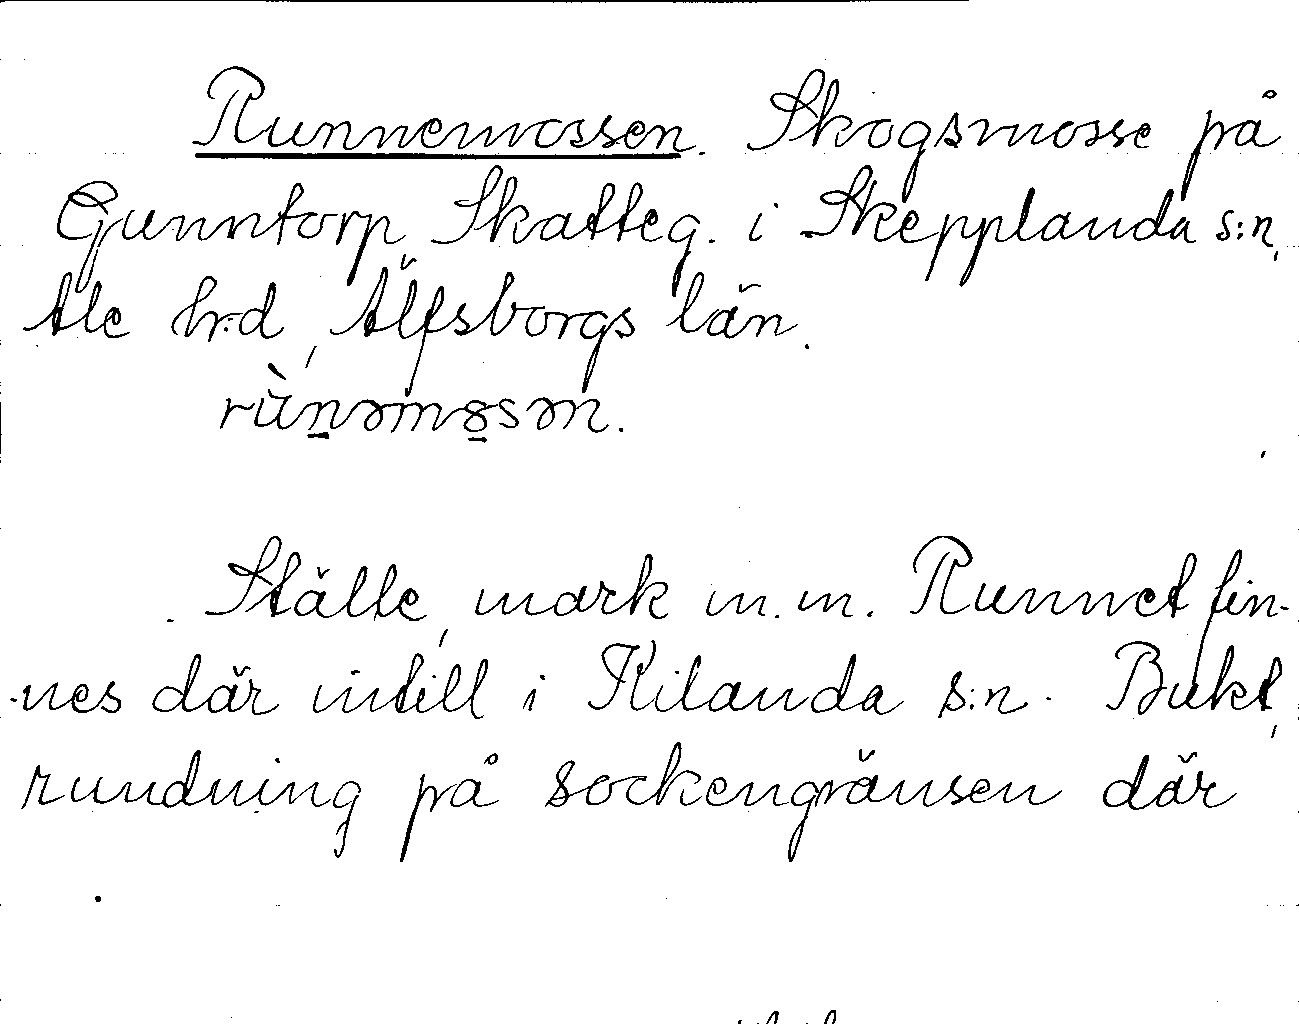 Runnemossen. Skogsmosse på
Gunntorp Skatteg. i Skepplanda s:n,
Ale h:d, Älfsborgs län.
rùn̠əmo̠sən.
Ställe, mark m.m. Runnet fin-
nes där intill i Kilanda s:n. Bukt,
rundning på sockengränsen där